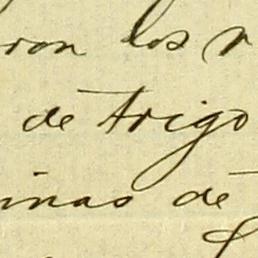 ron los
de trigo
inas de